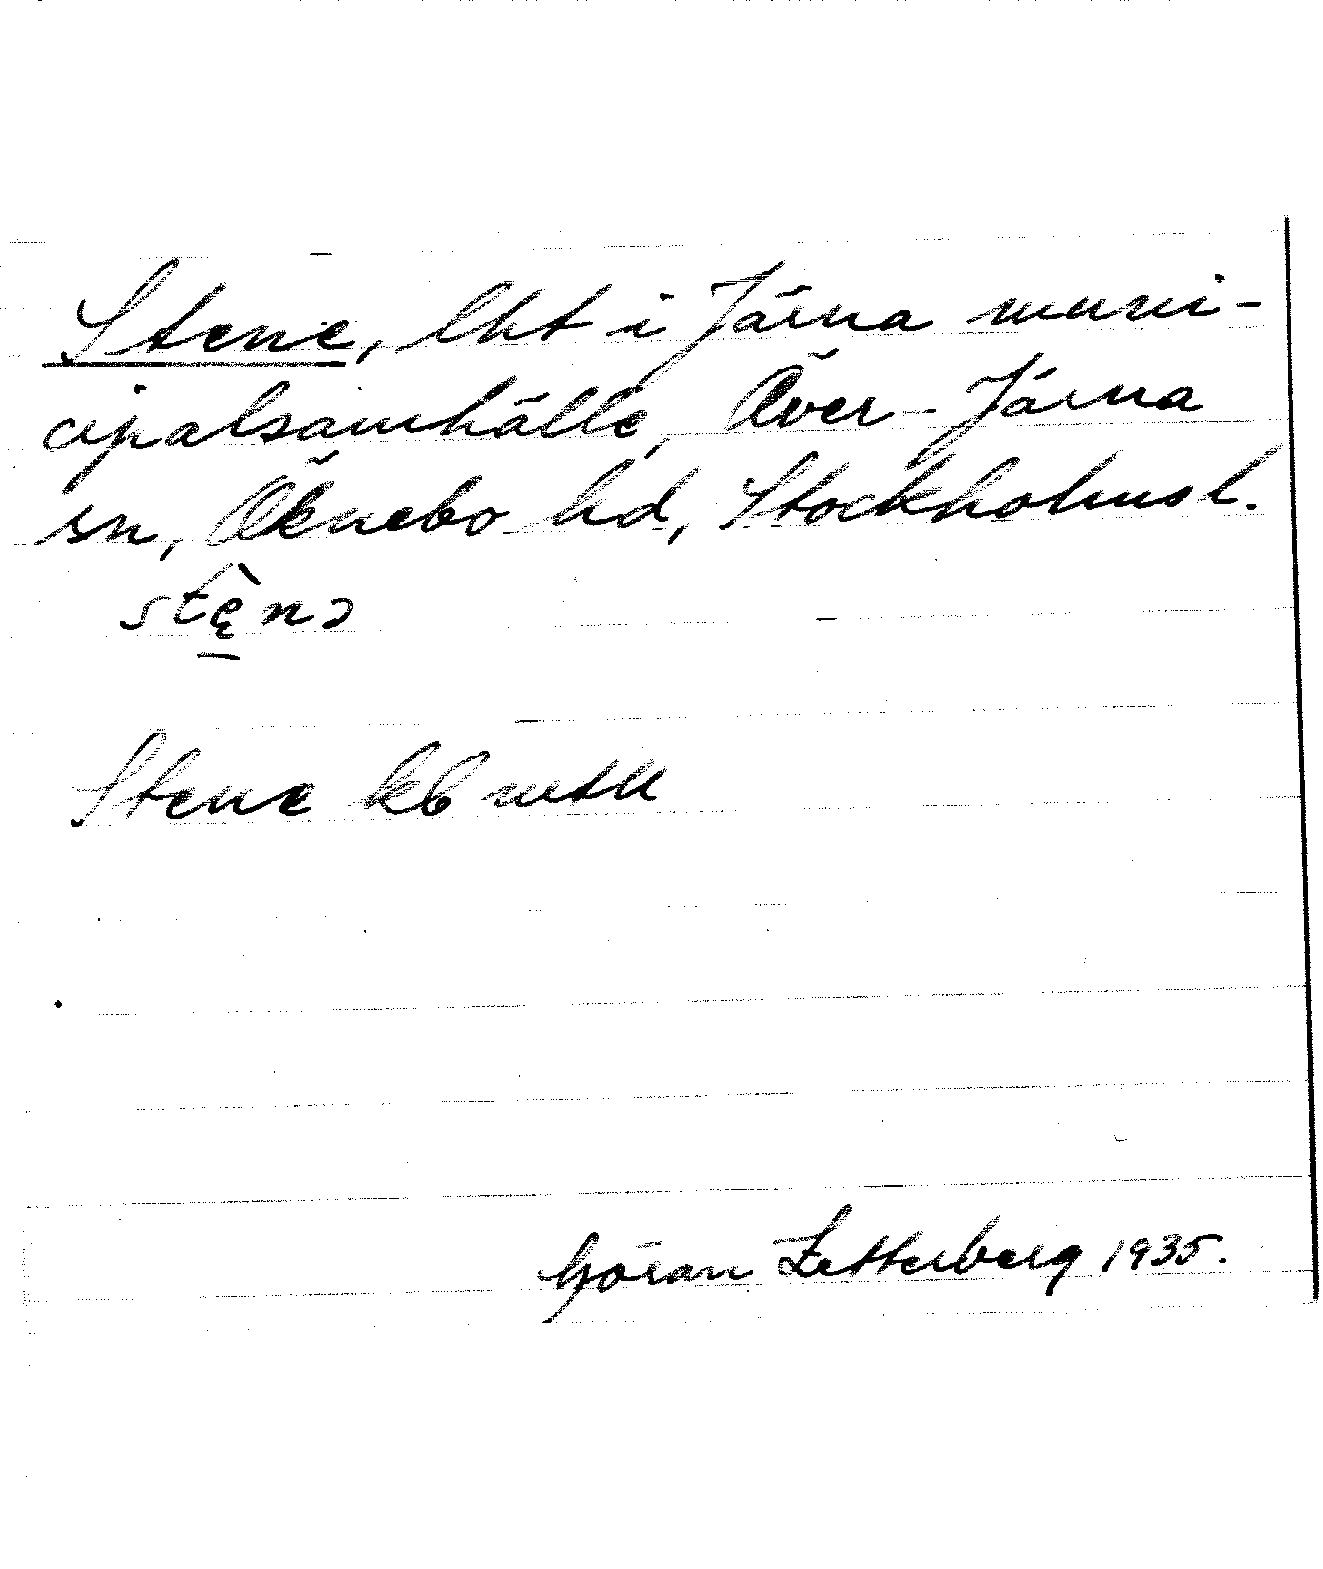 Stene, lht i Järna muni-
cipalsamhälle, Över-Järna
sn, Öknebo hd, Stockholmsl.
stę̀nə
Stene kb mtll
Göran Zetterberg 1935.